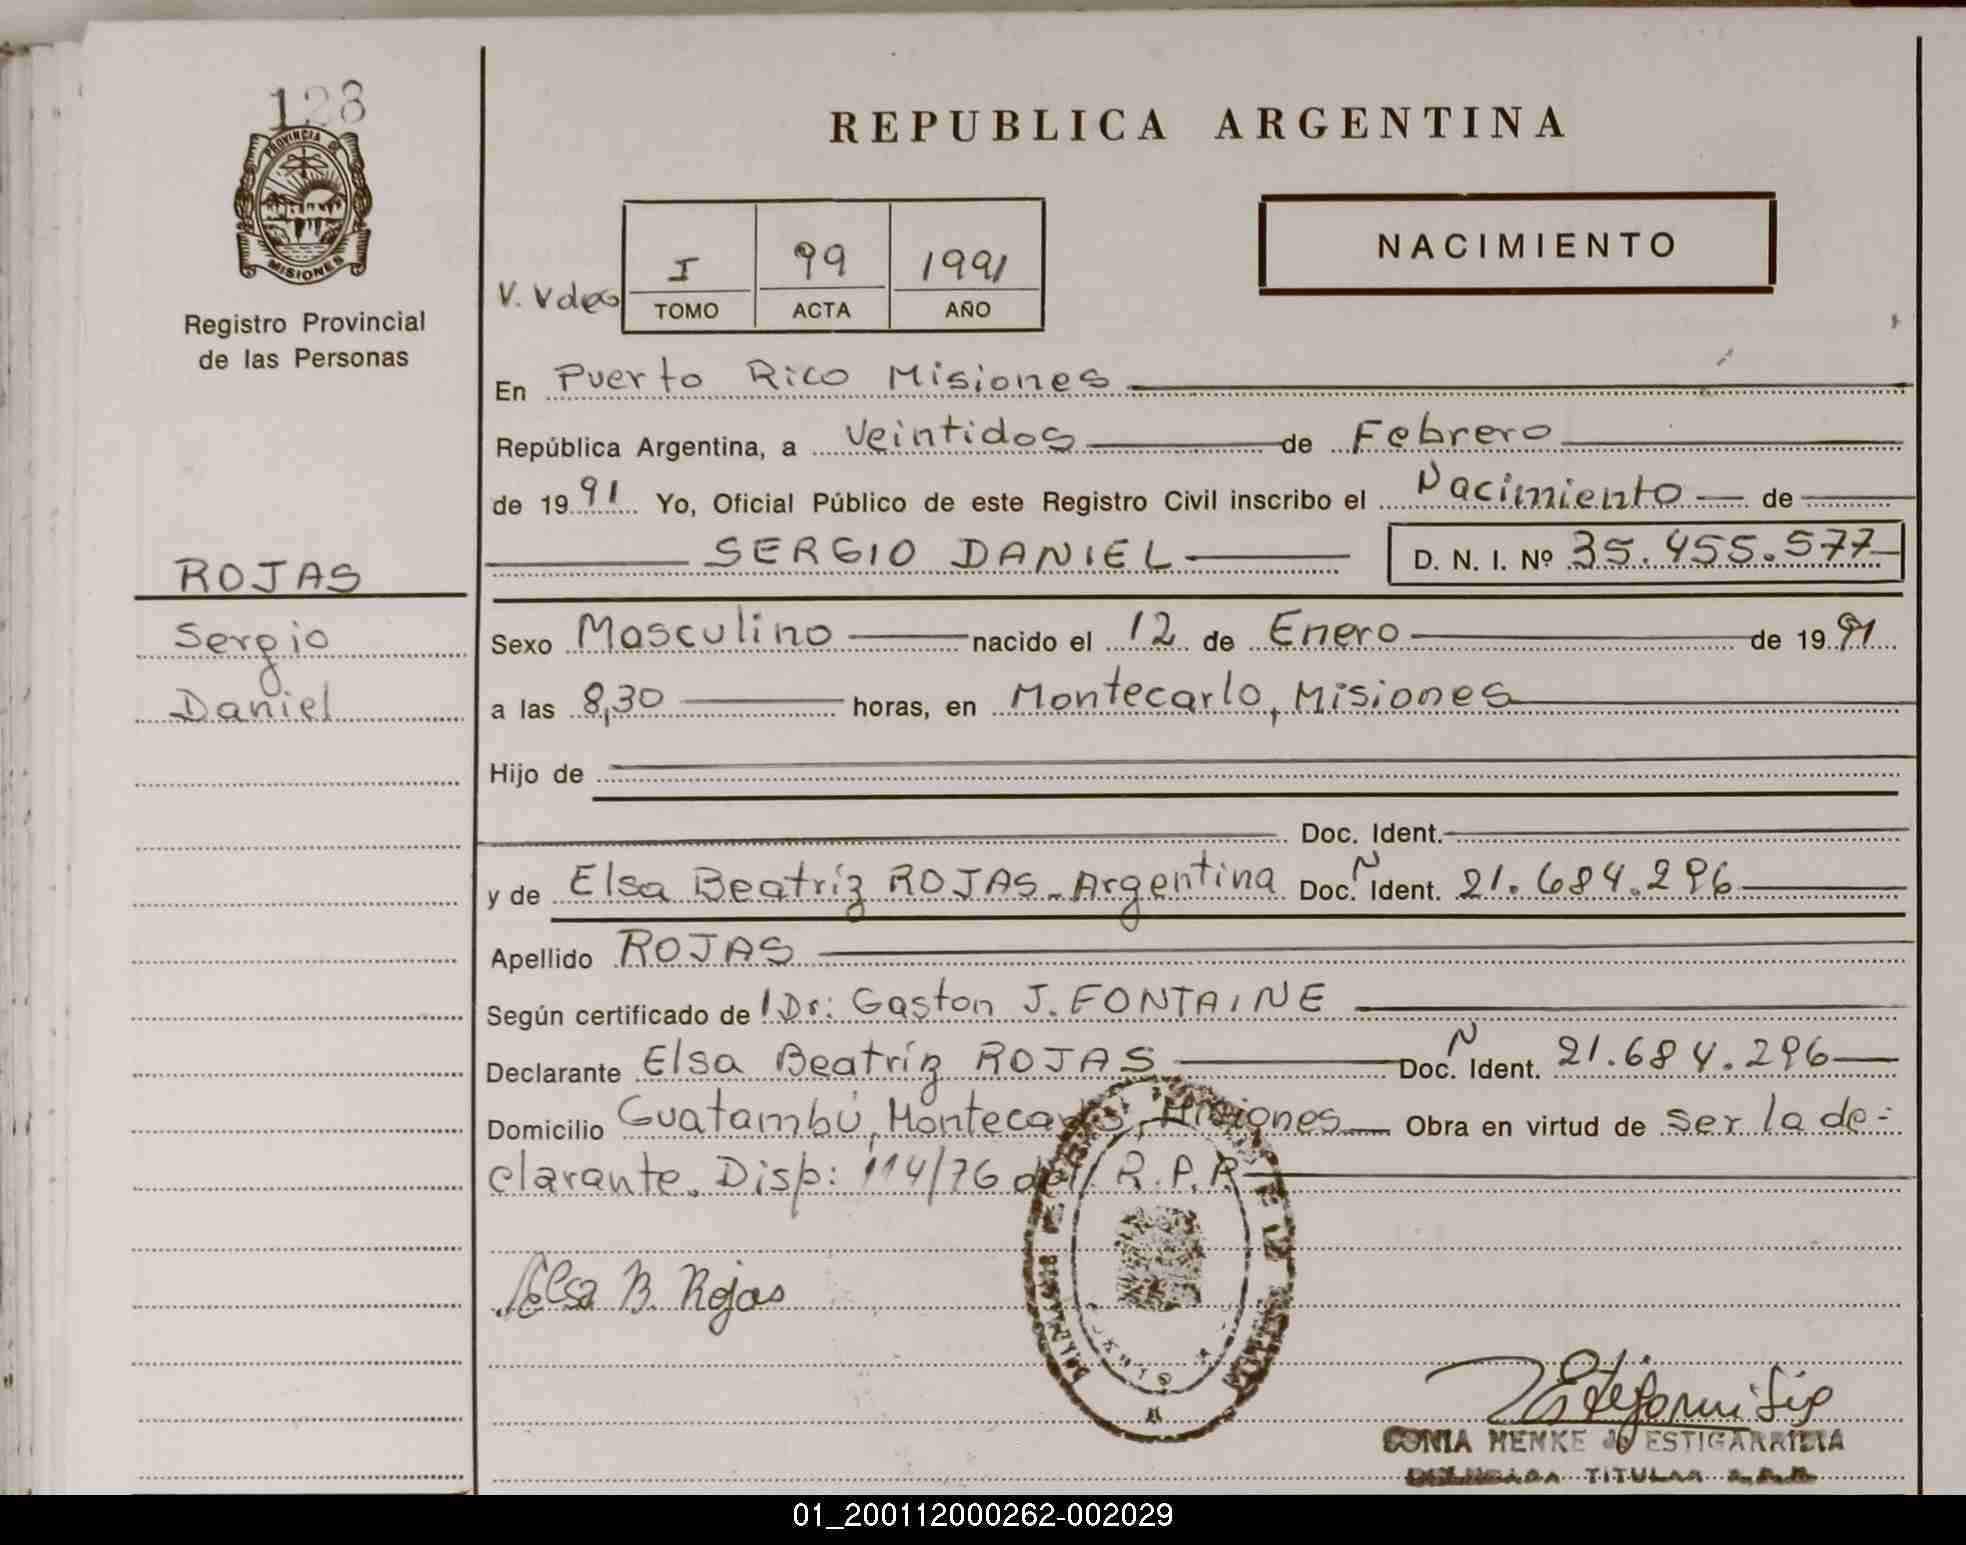 128
PROVINCIA DE
MISIONES
Registro Provincial
de las Personas
ROJAS
Sergio
Daniel
REPUBLICA ARGENTINA
NACIMIENTO
I 99 1991
V. Vdes TOMO ACTA AÑO
En Puerto Rico Misiones
República Argentina, a Veintidos de Febrero
de 1991 Yo, Oficial Público de este Registro Civil inscribo el Nacimiento de
SERGIO DANIEL D. N. I. Nº 35.455.577
Sexo Masculino nacido el 12 de Enero de 1991
a las 8,30 horas, en Montecarlo, Misiones
Hijo de
Doc. Ident.
y de Elsa Beatríz ROJAS - Argentina Doc. N Ident. 21.684.296
Apellido ROJAS
Según certificado de Dr: Gaston J. FONTAINE
Declarante Elsa Beatríz ROJAS Doc. N Ident. 21.684.296
Domicilio Guatambú, Montecarlo, Misiones Obra en virtud de ser la de-
clarante. Disp: 114/76 del R.P.P.
Elsa B. Rojas
SONIA MENKE de ESTIGARRIBIA
TITULAR
01_200112000262-002029